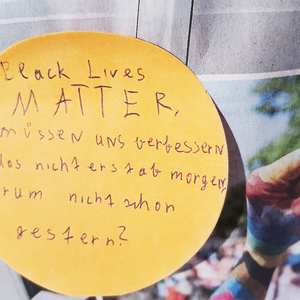 Black Lives
MATTER,
müssen uns verbessern
das nicht erst ab morgen,
rum nicht schon
gestern?